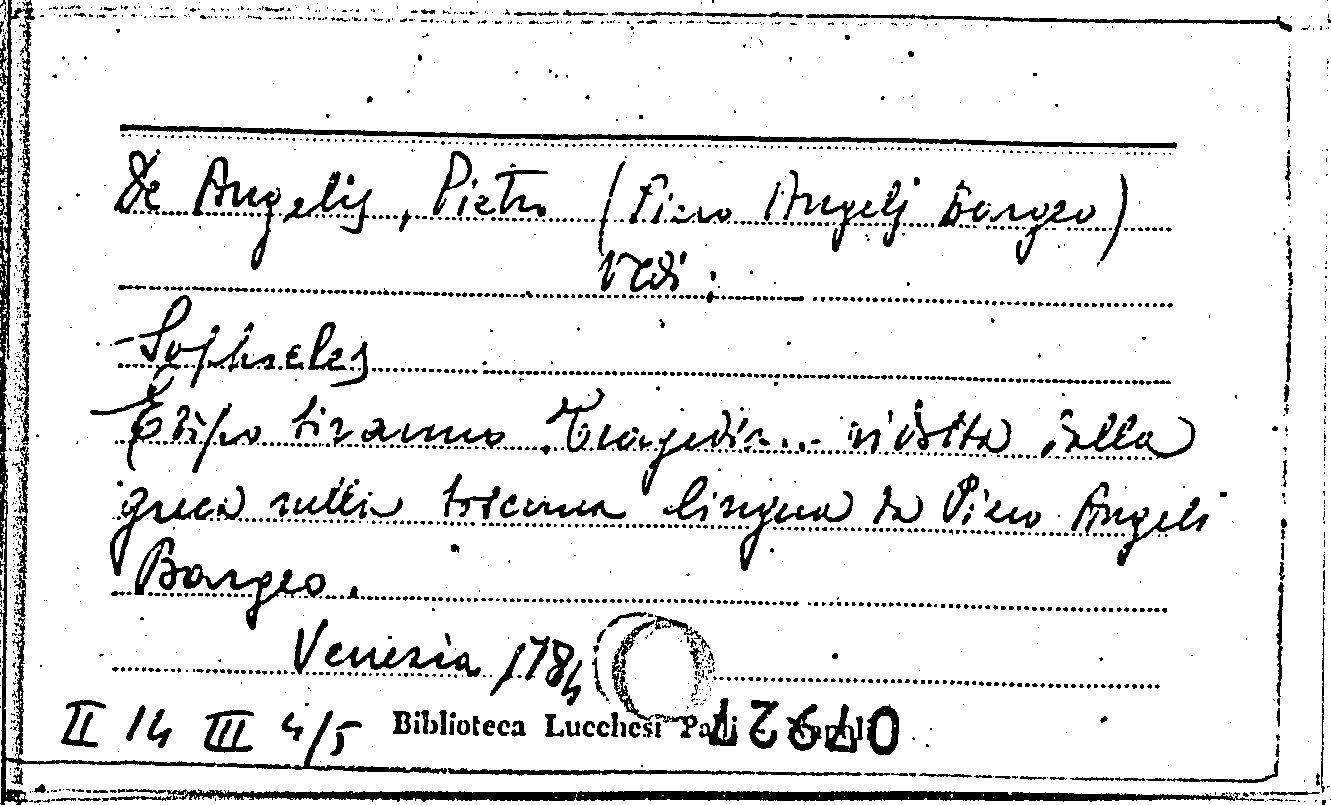 De Angelis, Pietro (Piero Angelj Bargeo)
Vedi:
Sophocles
Edipo tiranno. Tragedia... ridotta dalla
greca nella toscana lingua da Piero Angeli
Bargeo.
Venezia 1784
II 14 III 4/5 Biblioteca Lucchesi Palli